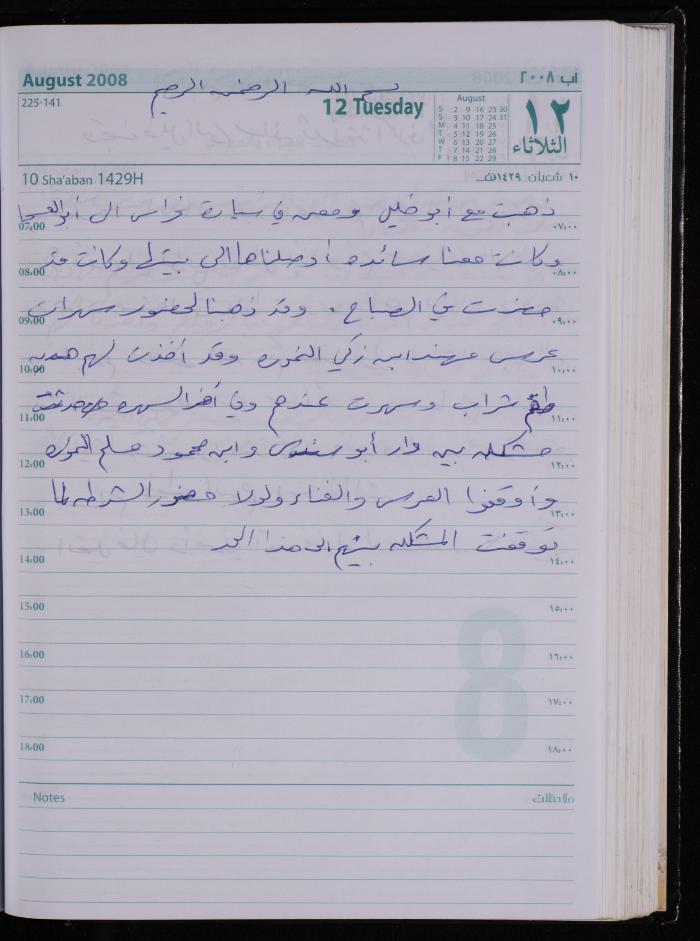 August 2008
آب ٢٠٠٨
بسم الله الرحمن الرحيم
225-141
12 Tuesday
August
S 2 9 16 23 30
S 3 10 17 24 31
M 4 11 18 25
T 5 12 19 26
W 6 13 20 27
T 7 14 21 28
F 1 8 15 22 29
١٢
الثلاثاء
10 Sha'aban 1429H
١٠ شعبان ١٤٢٩هـ
ذهبت مع أبو خليل ومعن في سيارة فراس الى أبو
07:00 ٠٧:٠٠
وكانت معنا سائده أوصلناها الى بيتها وكانت قد
08:00 ٠٨:٠٠
حضرت في الصباح . وقد ذهبنا لحضور سهرات
09:00 ٠٩:٠٠
عرس مهند ابن زكي النموره وقد أخذت لهم
10:00 ١٠:٠٠
طقم شراب وسهرت عندهم وفي آخر السهره حدثت
11:00 ١١:٠٠
مشكله بين دار أبو وابن محمود مسلم النموره
12:00 ١٢:٠٠
وأوقفوا العرس والغناء ولولا حضور الشرطه لما
13:00 ١٣:٠٠
توقفت المشكله بينهم الى هذا الحد
14:00 ١٤:٠٠
15:00 ١٥:٠٠
16:00 ١٦:٠٠
17:00 ١٧:٠٠
18:00 ١٨:٠٠
8
Notes ملاحظات